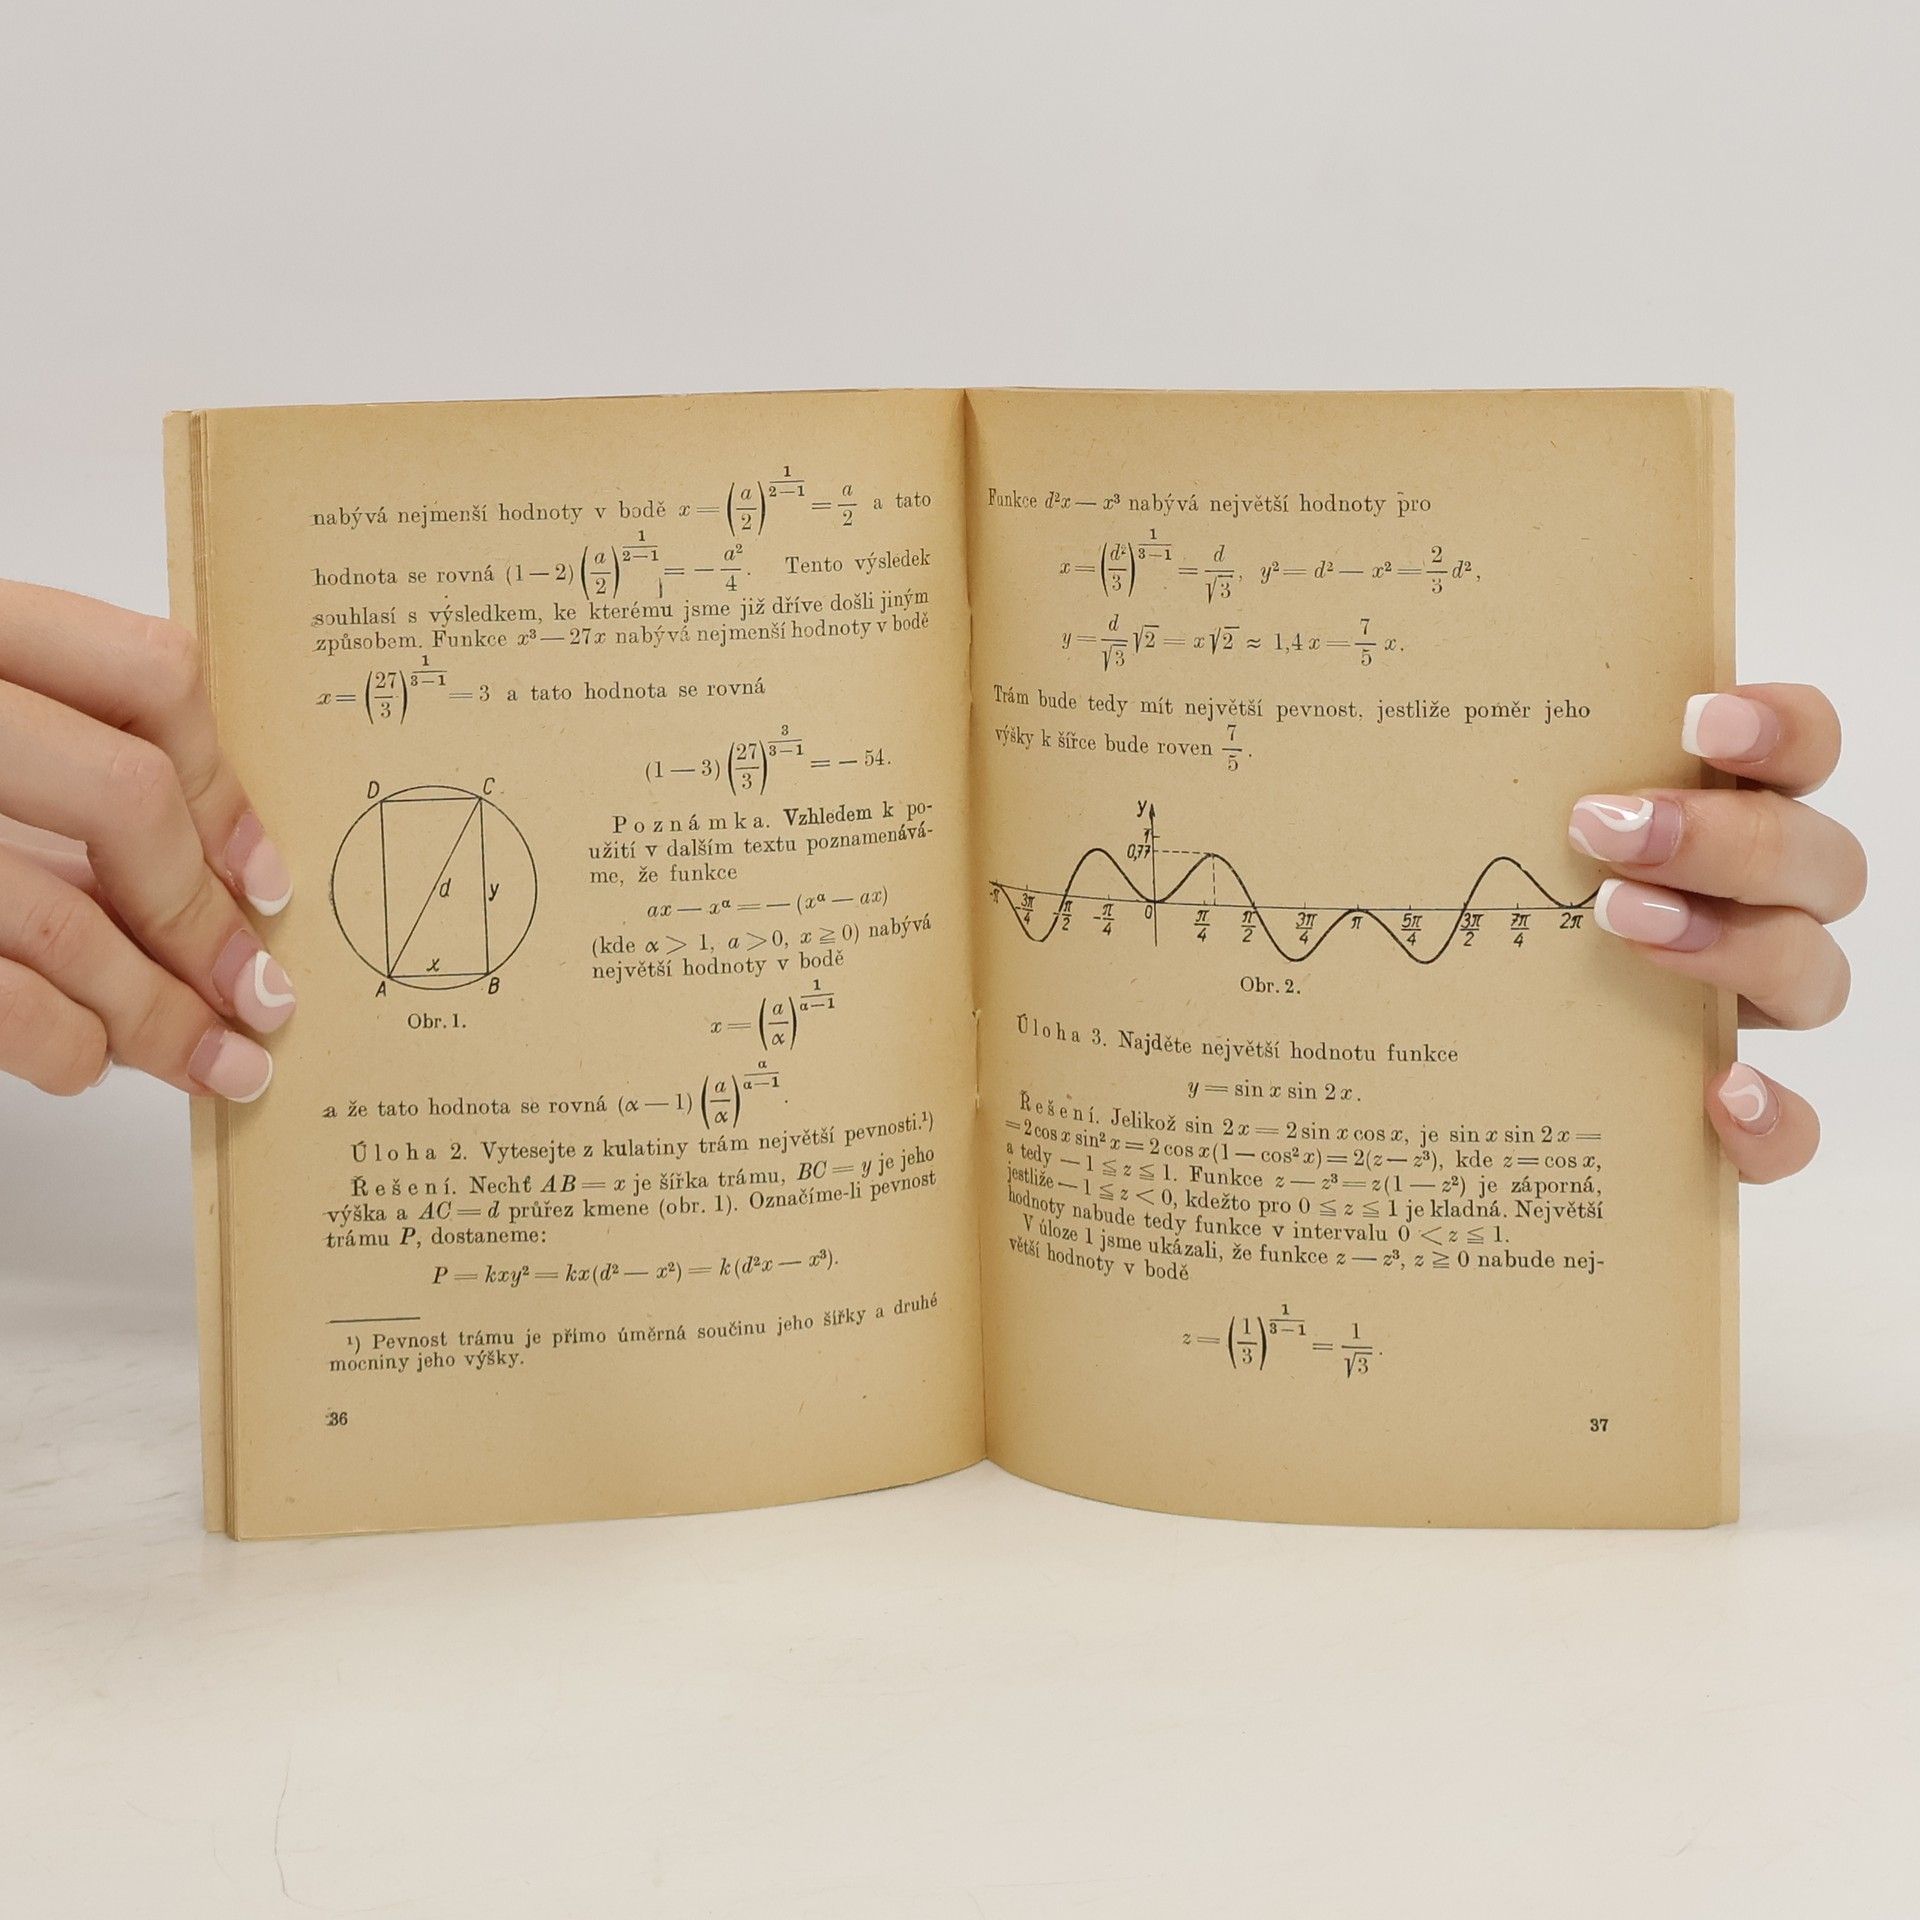 nabývá nejmenší hodnoty v bodě x = (a/2)^(1/(2—1)) = a/2 a tato
hodnota se rovná (1 — 2) (a/2)^(1/(2—1)) = — a²/4. Tento výsledek
souhlasí s výsledkem, ke kterému jsme již dříve došli jiným
způsobem. Funkce x³ — 27x nabývá nejmenší hodnoty v bodě
x = (27/3)^(1/(3—1)) = 3 a tato hodnota se rovná
(1 — 3) (27/3)^(3/(3—1)) = — 54.
D C
d y
x
A B
Obr. 1.
Poznámka. Vzhledem k po-
užití v dalším textu poznamenává-
me, že funkce
ax — x^α = — (x^α — ax)
(kde α > 1, a > 0, x ≧ 0) nabývá
největší hodnoty v bodě
x = (a/α)^(1/(α—1))
a že tato hodnota se rovná (α — 1) (a/α)^(α/(α—1)).
Úloha 2. Vytesejte z kulatiny trám největší pevnosti.¹)
Řešení. Nechť AB = x je šířka trámu, BC = y je jeho
výška a AC = d průřez kmene (obr. 1). Označíme-li pevnost
trámu P, dostaneme:
P = kxy² = kx(d² — x²) = k(d²x — x³).
¹) Pevnost trámu je přímo úměrná součinu jeho šířky a druhé
mocniny jeho výšky.
36
Funkce d²x — x³ nabývá největší hodnoty pro
x = (d²/3)^(1/(3—1)) = d/√3, y² = d² — x² = 2/3 d²,
y = d/√3 √2 = x√2 ≈ 1,4 x = 7/5 x.
Trám bude tedy mít největší pevnost, jestliže poměr jeho
výšky k šířce bude roven 7/5.
y
1
0,77
-π -3π/4 -π/2 -π/4 0 π/4 π/2 3π/4 π 5π/4 3π/2 7π/4 2π
Obr. 2.
Úloha 3. Najděte největší hodnotu funkce
y = sin x sin 2x.
Řešení. Jelikož sin 2x = 2 sin x cos x, je sin x sin 2x =
= 2 cos x sin² x = 2 cos x(1 — cos² x) = 2(z — z³), kde z = cos x,
a tedy — 1 ≦ z ≦ 1. Funkce z — z³ = z(1 — z²) je záporná,
jestliže — 1 ≦ z < 0, kdežto pro 0 ≦ z ≦ 1 je kladná. Největší
hodnoty nabude tedy funkce v intervalu 0 < z ≦ 1.
V úloze 1 jsme ukázali, že funkce z — z³, z ≧ 0 nabude nej-
větší hodnoty v bodě
z = (1/3)^(1/(3—1)) = 1/√3.
37